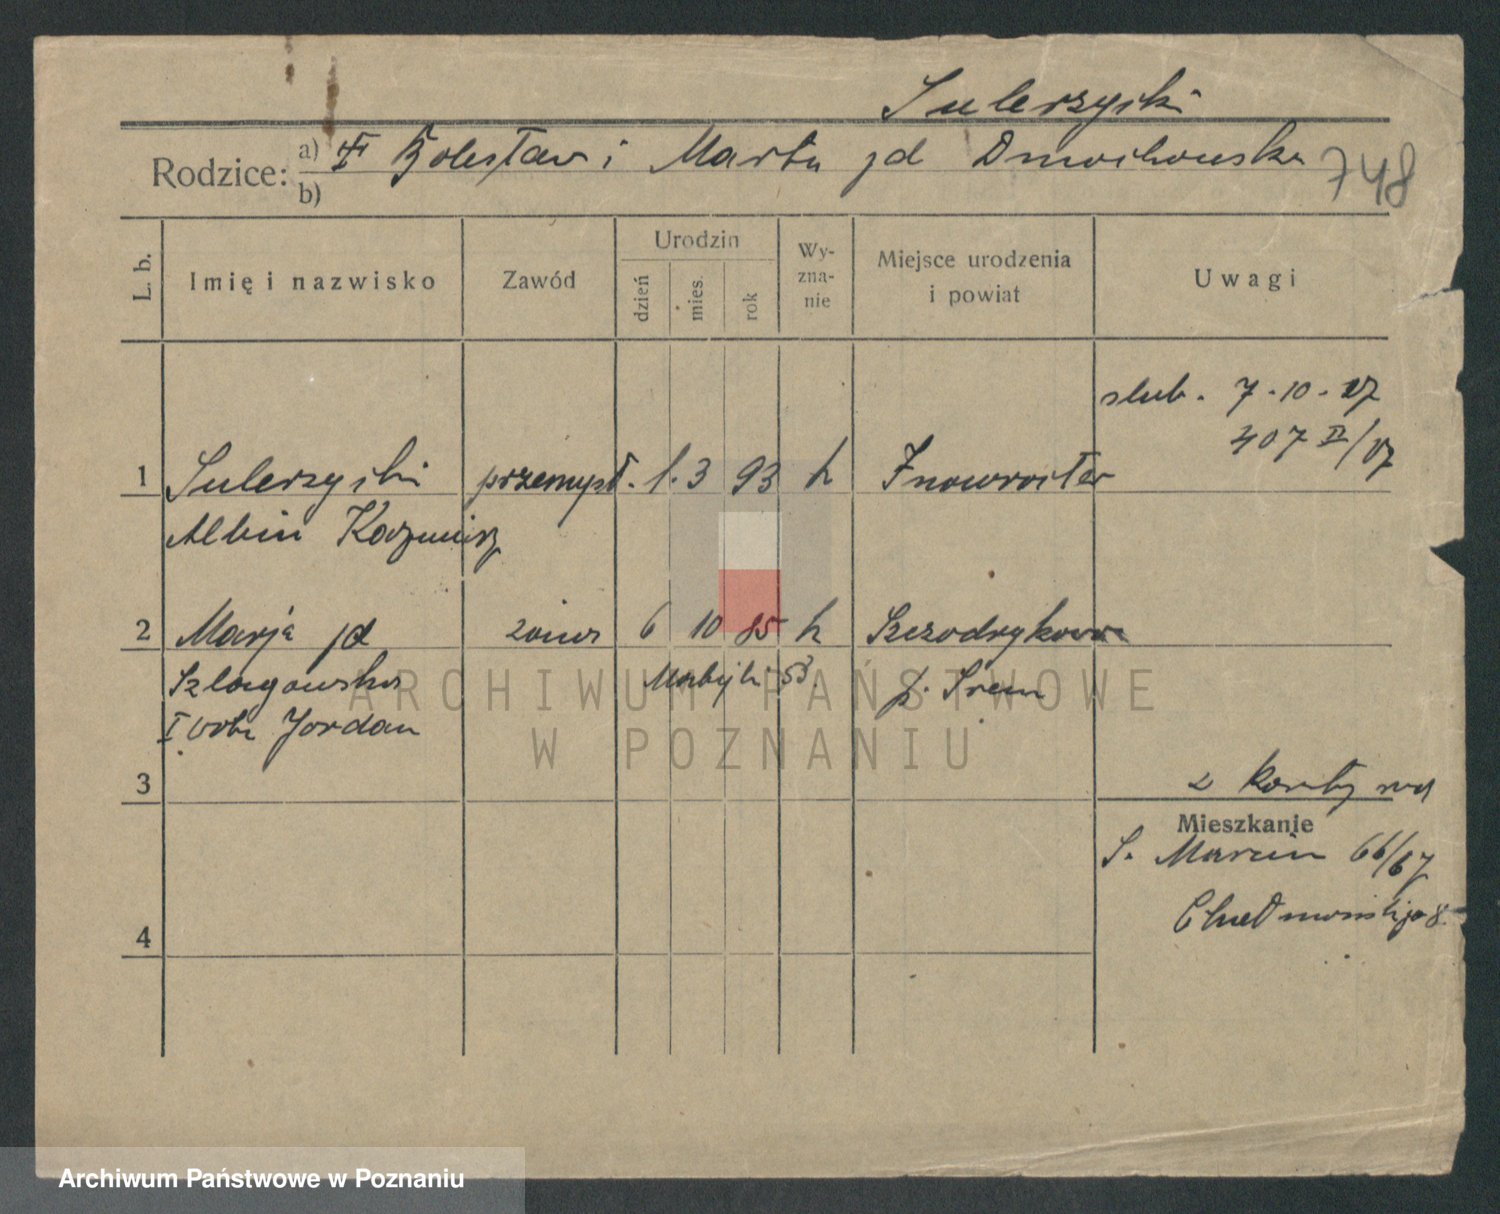 Sulerzyski
Rodzice:
a) Bolesław i Marta jd Dmochowska
748
b)
L. b.
Imię i nazwisko
Zawód
Urodzin
dzień
mies.
rok
Wy-
zna-
nie
Miejsce urodzenia
i powiat
Uwagi
slub. 7.10.27
407 II/27
1 Sulerzyski przemysł. 1. 3 93 k Inowrocław
Albin Kazmierz
2 Marja jd 6 10 85 k Szczodrykowo
Szlagowska p. Śrem
I voto Jordan
3
2 karty
Mieszkanie
S. Marcin 66/67
4
Chełmońskiego 8.
ARCHIWUM PAŃSTWOWE
W POZNANIU
Archiwum Państwowe w Poznaniu